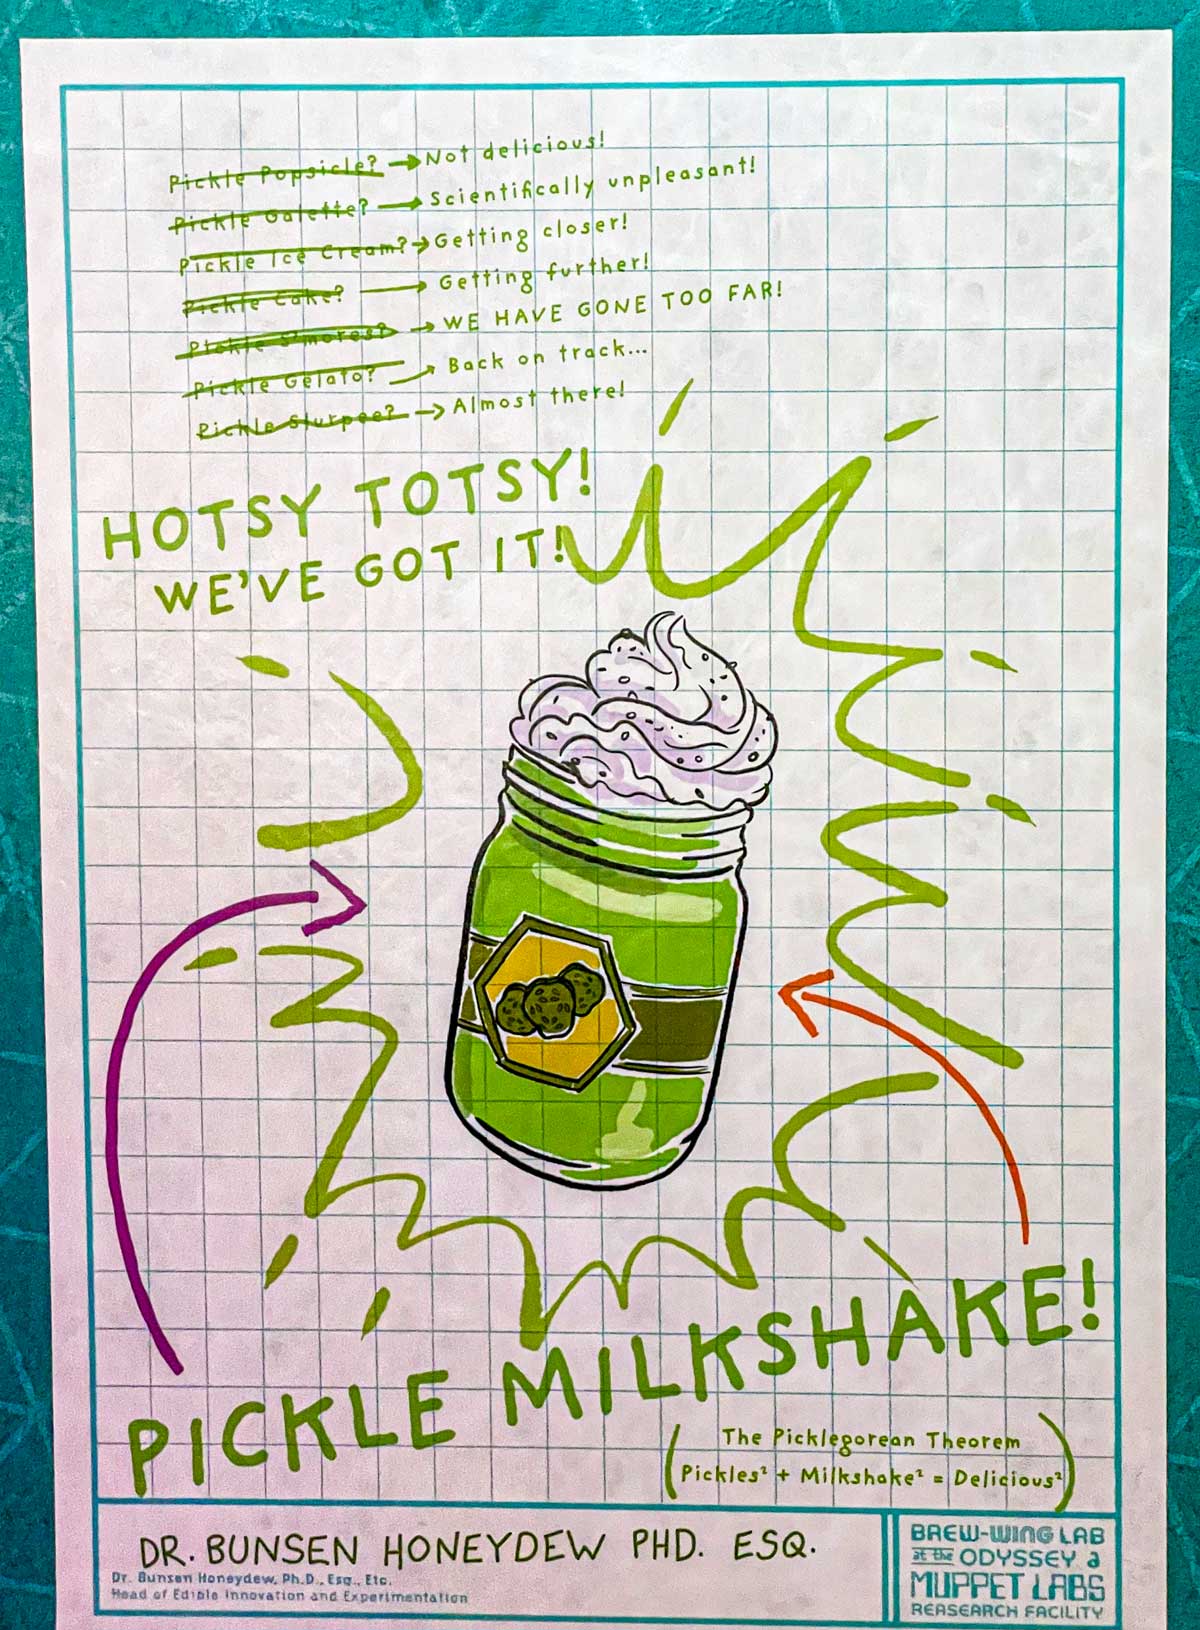 Pickle Popsicle? → Not delicious!
Pickle Galette? → Scientifically unpleasant!
Pickle Ice Cream? → Getting closer!
Pickle Cake? → Getting further!
Pickle S'mores? → WE HAVE GONE TOO FAR!
Pickle Gelato? → Back on track...
Pickle Slurpee? → Almost there!
HOTSY TOTSY!
WE'VE GOT IT!
PICKLE MILKSHAKE!
(The Picklegorean Theorem
Pickles² + Milkshake² = Delicious²)
DR. BUNSEN HONEYDEW PHD. ESQ.
Dr. Bunsen Honeydew, Ph.D., Esq., Etc.
Head of Edible Innovation and Experimentation
BREW-WING LAB
at the ODYSSEY, a
MUPPET LABS
REASEARCH FACILITY